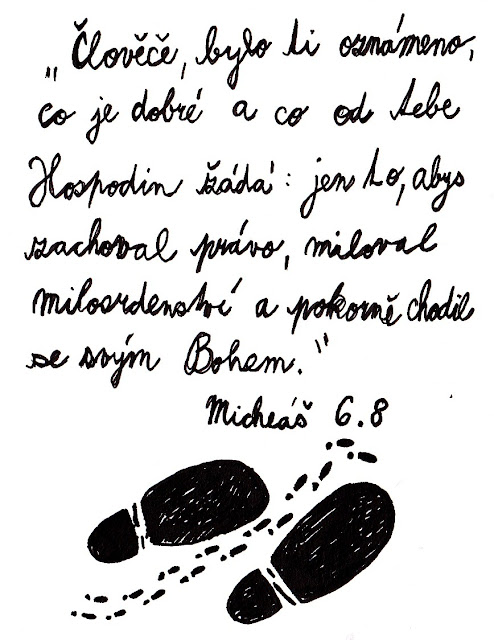 „Člověče, bylo ti oznámeno,
co je dobré a co od tebe
Hospodin žádá: jen to, abys
zachoval právo, miloval
milosrdenství a pokorně chodil
se svým Bohem."
Micheáš 6.8